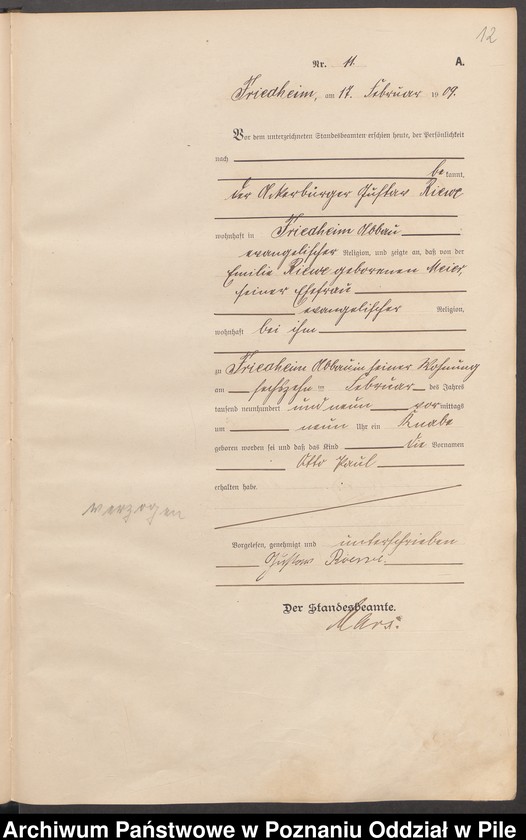 12
Nr. 11. A.
Friedheim, am 17. Februar 1909.
Vor dem unterzeichneten Standesbeamten erschien heute, der Persönlichkeit
nach
bekannt,
der Ackerbürger Gustav
wohnhaft in Friedheim Abbau
evangelischer Religion, und zeigte an, daß von der
Emilie geborenen Meier
seiner Ehefrau
evangelischer Religion,
wohnhaft bei ihm
zu Friedheim Abbau in seiner Wohnung
am sechszehn ten Februar des Jahres
tausend neunhundert und neun vormittags
um neun Uhr ein Knabe
geboren worden sei und daß das Kind die Vornamen
Otto Paul
erhalten habe.
verzogen
Vorgelesen, genehmigt und unterschrieben
Gustav
Der Standesbeamte.
Archiwum Państwowe w Poznaniu Oddział w Pile